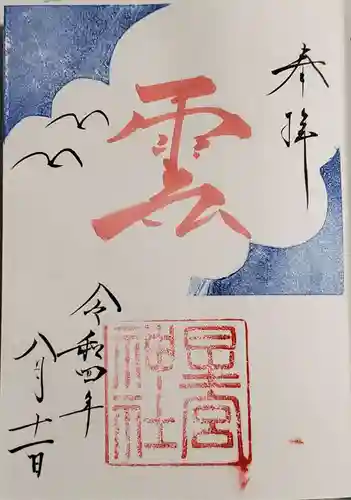 奉拝
雲
星宮
神社
令和四年
八月十一日